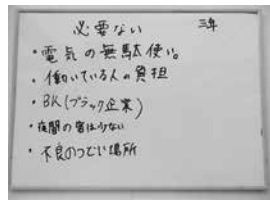 必要ない 三年
・電気の無駄使い。
・働いている人の負担
・BK(ブラック企業)
・夜間の客は少ない
・不良のつどい場所